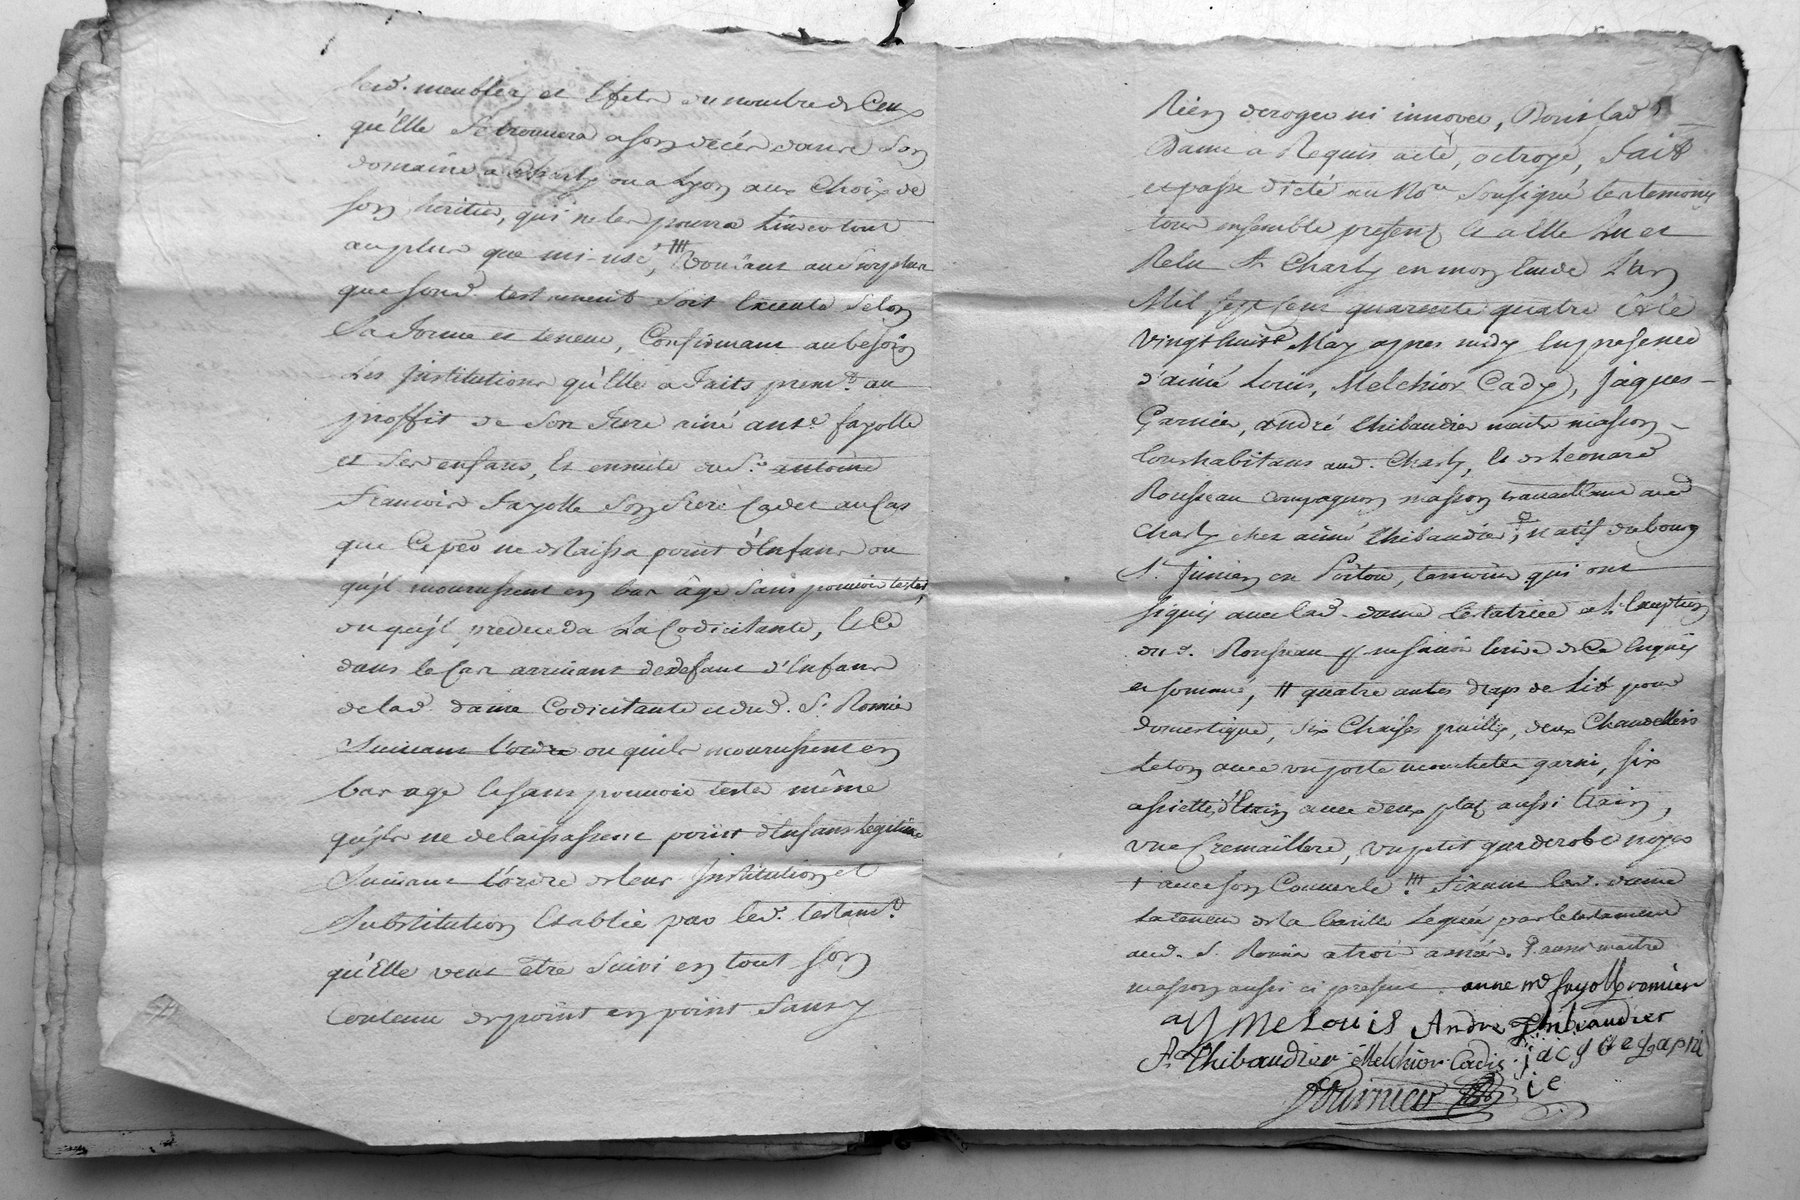 lesd. meubles et Effets du nombre de Ceux
qu'Elle Se trouuera a son décés dans Son
domaine a Charly ou a Lyon aux Choix de
son heritier, qui ne les pourra tout
au plus que mi-usé, voulant au Surplus
que sond. testament soit Execute Selon
Sa forme et teneur, Confirmant au besoin
Les Institutions qu'Elle a faits premt. au
proffit de Son frere ainé ant.e fayolle
et Ses enfans, Et ensuite du S.r antoine
Francois Fayolle Son frere Cadet au Cas
que Ce pero ne delaissa point d'Enfans ou
qu'jl mourussent en bas âge Sans pouuoir tester,
ou qu'jl predeceda La Codicitante, Et Ce
dans le Cas arriuant dedefaut d'Enfans
de lad. dame Codicitante et dud. S.r Romier
Suiuant l'ordre ou quils mourussent en
bas age Et sans pouuoir tester même
qu'jls ne delaissassent point d'Enfans Legitime
Suiuant l'ordre de leur Institution et
Substitution Etablie par led. testamt.
qu'Elle veut être Suiui en tout Son
Contenu de point en point Sans y
Rien deroger ni innover, Dont lad.
Dame a Requis acte, octroyé, Fait
et passé dicté au No.re Soussigné les temoins
tous ensemble presens Et a Elle Lu et
Relu A Charly en mon Etude L'an
Mil Sept Cent quarante quatre Et le
vingt huit May apres midy En presence
d'aimé Louis, Melchior Cady, Jaques
Garnier, andré thibaudier maitre masson
tous habitans aud. Charly, Et de Leonard
Rousseau Compagnon masson trauaillant aud
Charly chez aimé thibaudier, natif du bourg
S.t Junien en Poitou, temoins qui ont
signés auec lad. dame testatrice a L'Exeption
dud. Rousseau pour ne sauoir Ecrire de Ce Enquis
et sommé, # quatre autes draps de Lit pour
domestique, Six Chaises paillé, deux Chandelliers
Leton auec un porte mouchette garni, six
assiettes d'Etain auec deux plat aussi Etain,
vne Cremaillere, vn petit garderobe noyer
+ auec son Couuercle. Fixant lad. dame
la teneur de la Leguée par le testament
aud. S. Romier a trois années. aussi maitre
masson aussi ci present. anne M.d fayolle romier
aymé Louis Andre Thibaudier
A. Thibaudier Melchior Cadis jacque garnie
Fournier